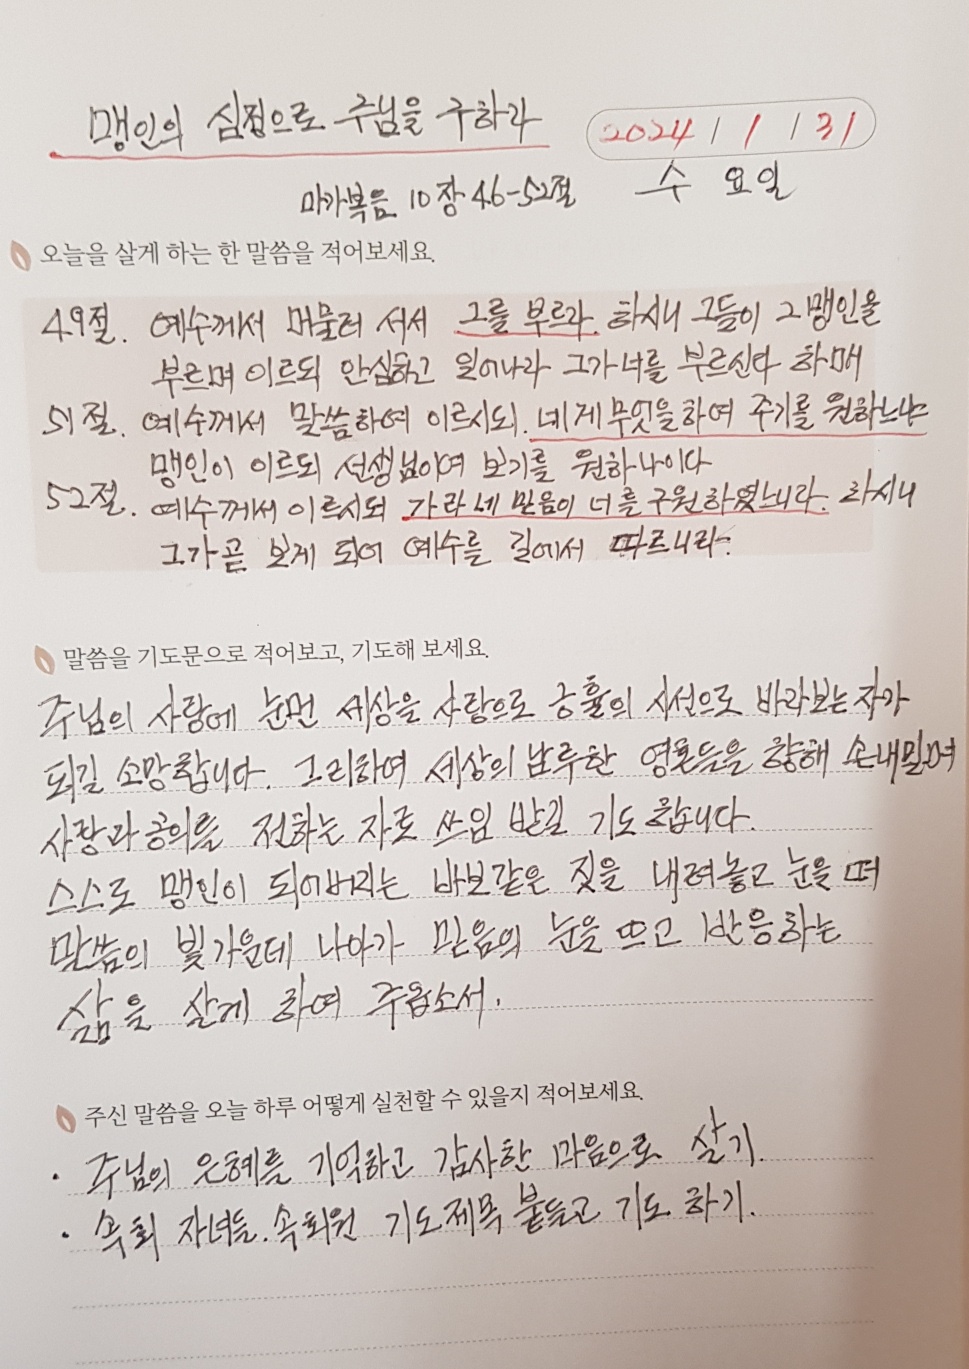 맹인의 심정으로 주님을 구하라
2024 / 1 / 31
마가복음 10장 46-52절
수요일
오늘을 살게 하는 한 말씀을 적어보세요.
49절. 예수께서 머물러 서서 그를 부르라. 하시니 그들이 그 맹인을
부르며 이르되 안심하고 일어나라 그가 너를 부르신다 하매
51절. 예수께서 말씀하여 이르시되. 네게 무엇을 하여 주기를 원하느냐
맹인이 이르되 선생님이여 보기를 원하나이다
52절. 예수께서 이르시되 가라 네 믿음이 너를 구원하였느니라. 하시니
그가 곧 보게 되어 예수를 길에서 따르니라.
말씀을 기도문으로 적어보고, 기도해 보세요.
주님의 사랑에 눈먼 세상을 사랑으로 긍휼의 시선으로 바라보는 자가
되길 소망합니다. 그리하여 세상의 남루한 영혼들을 향해 손내밀며
사랑과 공의를 전하는 자로 쓰임 받길 기도합니다.
스스로 맹인이 되어버리는 바보같은 짓을 내려놓고 눈을 떠
말씀의 빛 가운데 나아가 믿음의 눈을 뜨고 반응하는
삶을 살게 하여 주옵소서.
주신 말씀을 오늘 하루 어떻게 실천할 수 있을지 적어보세요.
· 주님의 은혜를 기억하고 감사한 마음으로 살기.
· 속회 자녀들. 속회원 기도제목 붙들고 기도 하기.